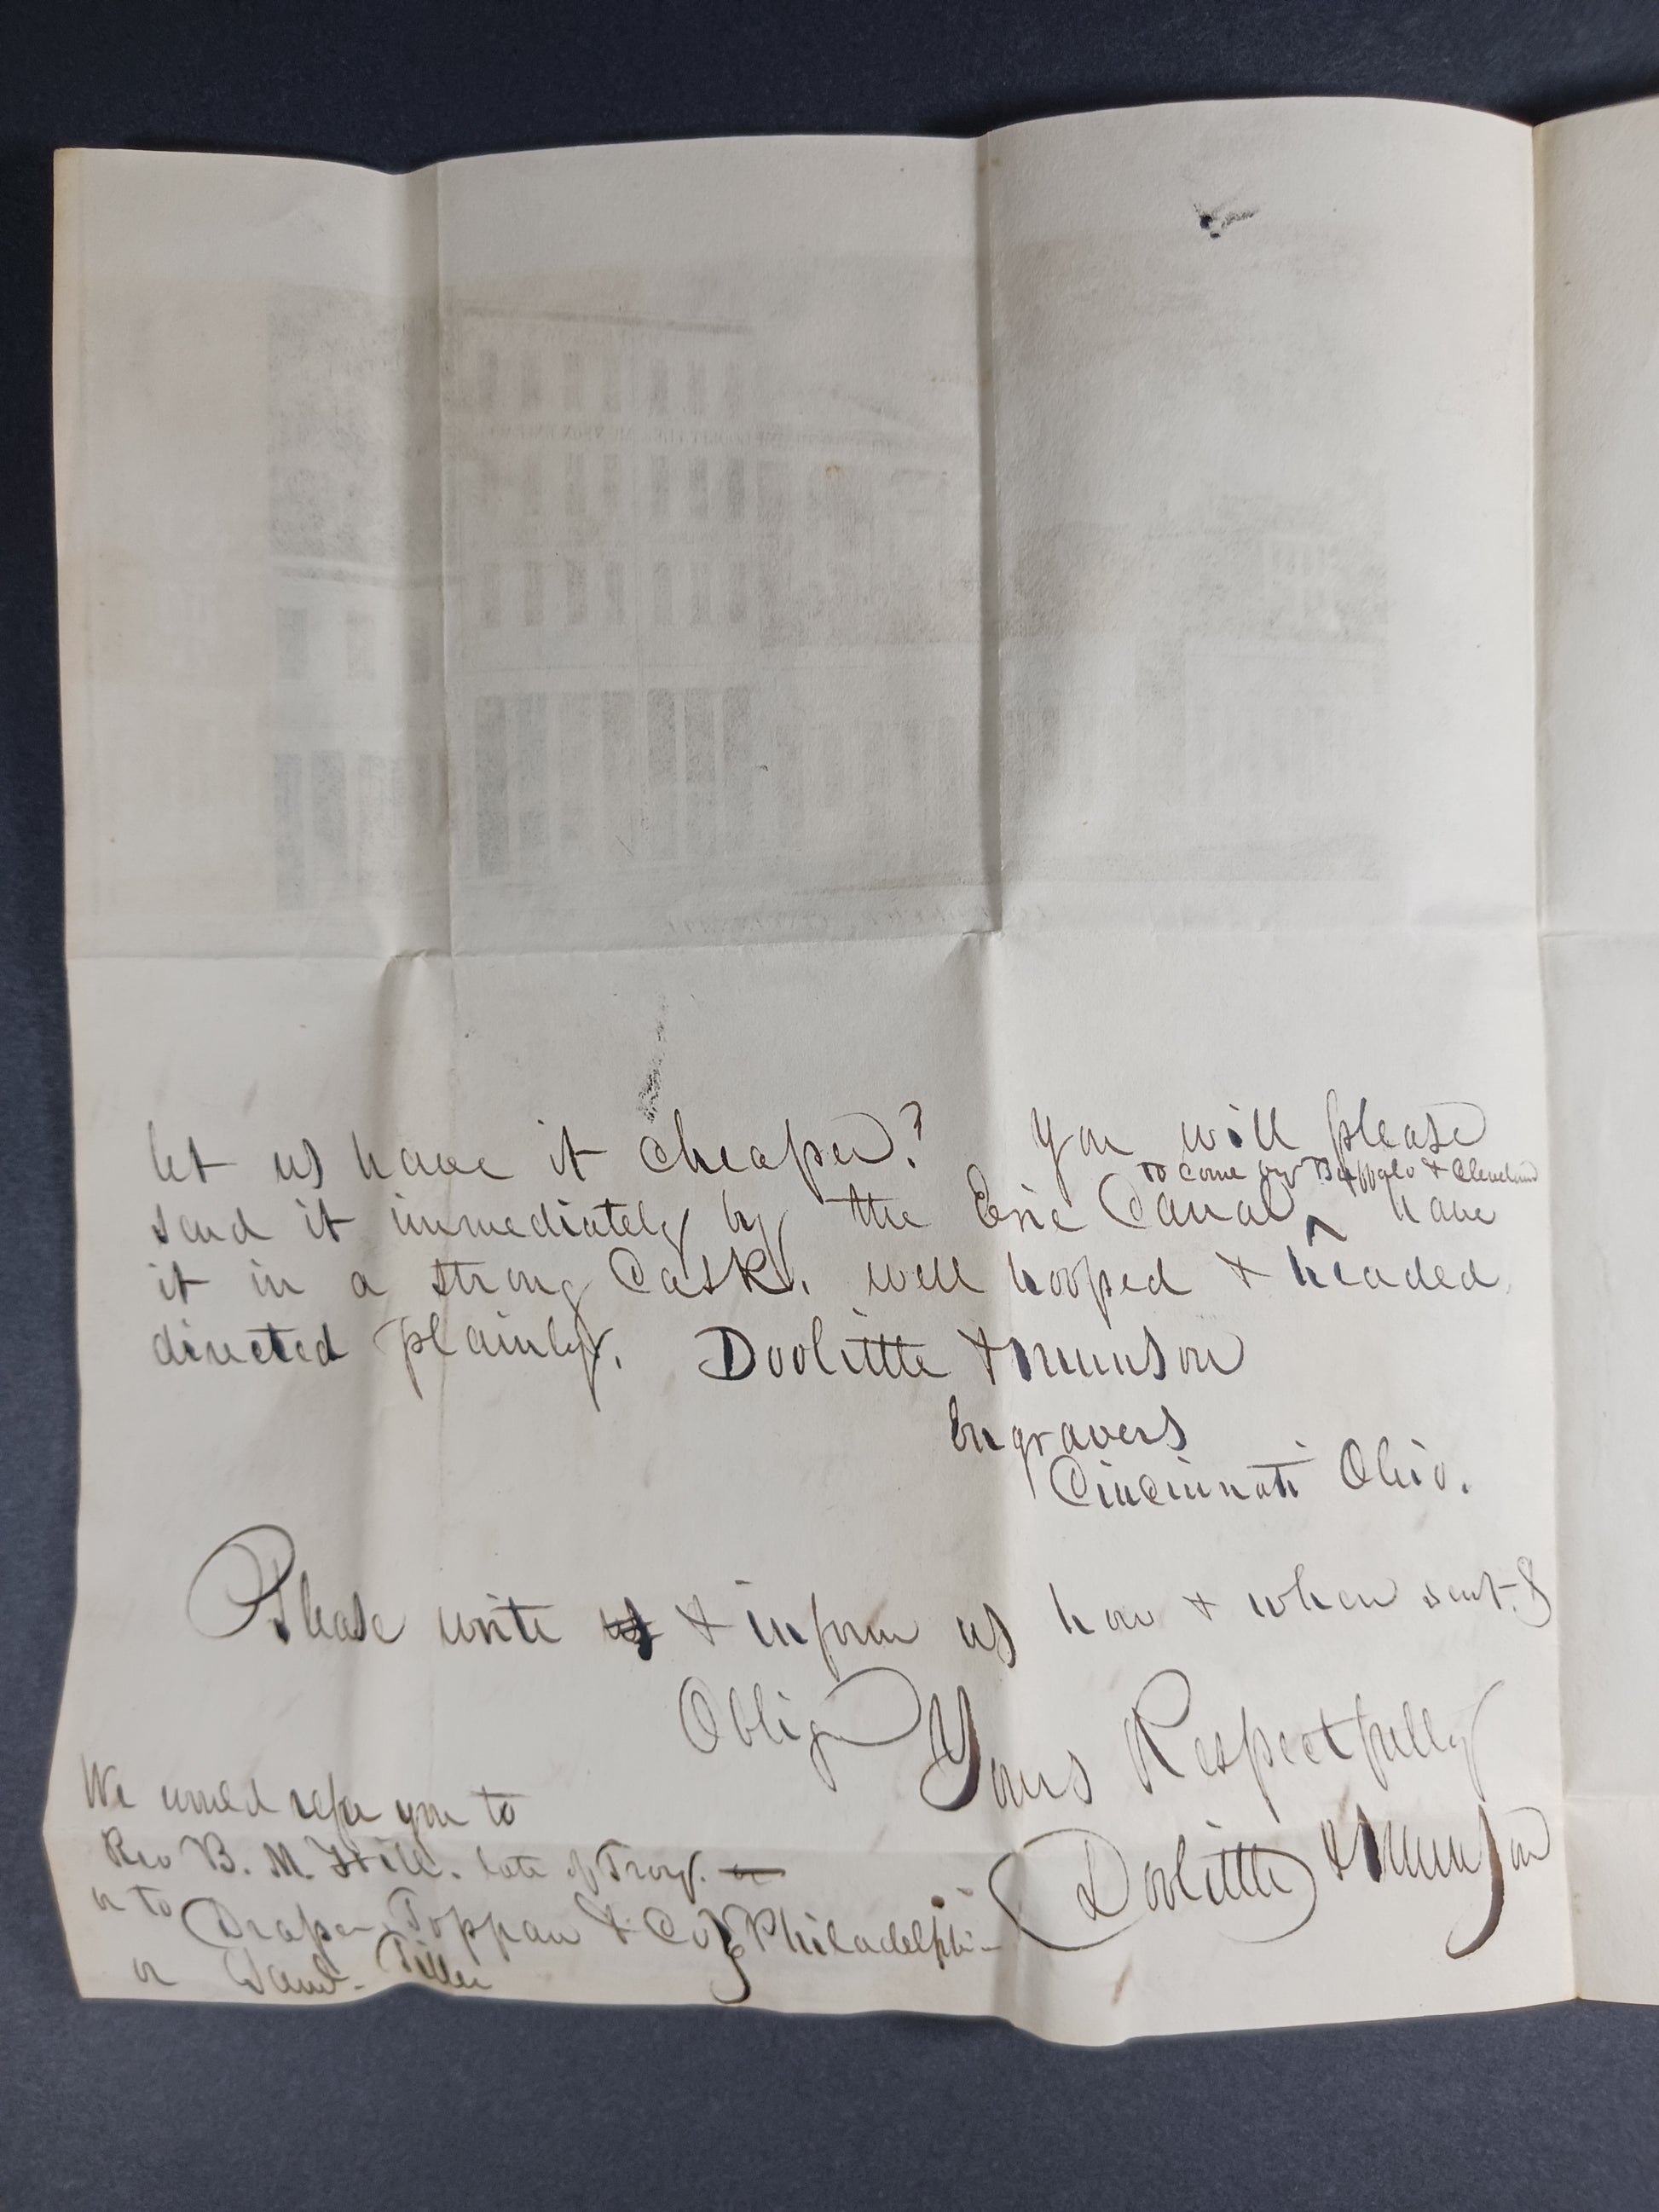 let us have it cheaper? You will please
to come by Buffalo & Cleveland
send it immediately by the Erie Canal ^ have
it in a strong Cask. well hooped & headed,
directed plainly. Doolittle & Munson
Engravers
Cincinnati Ohio.
Please write us & inform us how & when sent. &
Oblige
Yours Respectfully
Doolittle & Munson
We would refer you to
Rev B. M. Hill. late of Troy. or
or to Draper Toppan & Co Philadelphia
or